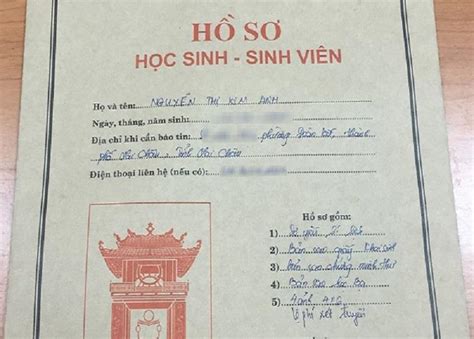 HỒ SƠ
HỌC SINH - SINH VIÊN
Họ và tên: NGUYỄN THỊ KIM ANH
Ngày, tháng, năm sinh:
Địa chỉ khi cần báo tin: phường Đoàn kết, thành
phố Lai Châu, tỉnh Lai Châu
Điện thoại liên hệ (nếu có):
Hồ sơ gồm:
1) Sơ yếu lí lịch
2) Bản sao giấy khai sinh
3) Bản sao chứng minh thư
4) Bản sao học bạ
5) 4 ảnh 4x6
Lệ phí xét tuyển